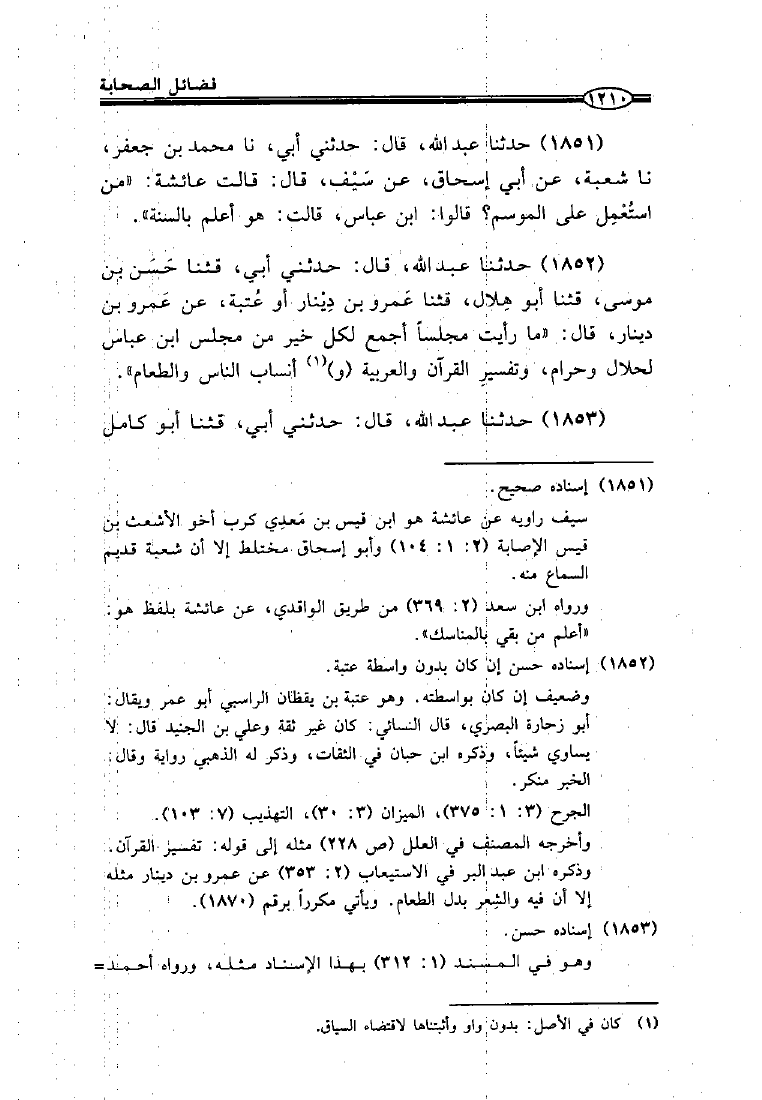 فضائل الصحابة
١٢١٠
(١٨٥١) حدثنا عبد الله، قال: حدثني أبي، نا محمد بن جعفر،
نا شعبة، عن أبي إسحاق، عن سَيْف، قال: قالت عائشة: «من
استُعْمِل على الموسم؟ قالوا: ابن عباس، قالت: هو أعلم بالسنة».
(١٨٥٢) حدثنا عبد الله، قال: حدثني أبي، قثنا حَسَن بن
موسى، قثنا أبو هِلال، قثنا عَمرو بن دِيْنار أو عُتبة، عن عَمرو بن
دينار، قال: «ما رأيت مجلساً أجمع لكل خير من مجلس ابن عباس
لحلال وحرام، وتفسيرِ القرآن والعربية (و)(١) أنساب الناس والطعام».
(١٨٥٣) حدثنا عبد الله، قال: حدثني أبي، قثنا أبو كامل
(١٨٥١) إسناده صحيح.
سيف راويه عن عائشة هو ابن قيس بن مَعدِي كرب أخو الأشعث بن
قيس الإصابة (٢: ١: ١٠٤) وأبو إسحاق مختلط إلا أن شعبة قديم
السماع منه.
ورواه ابن سعد (٢: ٣٦٩) من طريق الواقدي، عن عائشة بلفظ هو:
«أعلم من بقي بالمناسك».
(١٨٥٢) إسناده حسن إن كان بدون واسطة عتبة.
وضعيف إن كان بواسطته. وهو عتبة بن يقظان الراسبي أبو عمر ويقال:
أبو زحارة البصري، قال النسائي: كان غير ثقة وعلي بن الجنيد قال: لا
يساوي شيئاً، وذكره ابن حبان في الثقات، وذكر له الذهبي رواية وقال:
الخبر منكر.
الجرح (٣: ١: ٣٧٥)، الميزان (٣: ٣٠)، التهذيب (٧: ١٠٣).
وأخرجه المصنف في العلل (ص ٢٢٨) مثله إلى قوله: تفسير القرآن.
وذكره ابن عبد البر في الاستيعاب (٢: ٣٥٣) عن عمرو بن دينار مثله
إلا أن فيه والشِعر بدل الطعام. ويأتي مكرراً برقم (١٨٧٠).
(١٨٥٣) إسناده حسن.
وهو في المسند (١: ٣١٢) بهذا الإسناد مثله، ورواه أحمد=
(١) كان في الأصل: بدون واو وأثبتناها لاقتضاء السياق.